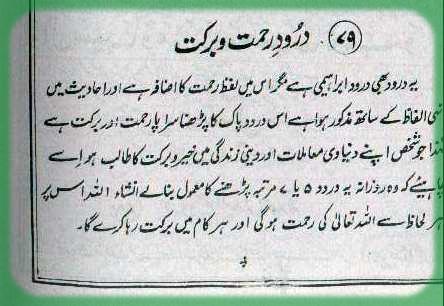 ۷۹ درود رحمت و برکت
یہ درود بھی درود ابراہیمی ہے مگر اس میں لفظ رحمت کا اضافہ ہے اور احادیث میں
سی الفاظ کے ساتھ مذکور ہوا ہے اس درود پاک کا پڑھنا سراپا رحمت اور برکت ہے
ہٰذا جو شخص اپنے دنیاوی معاملات اور دینی زندگی میں خیر و برکت کا طالب ہو اسے
چاہیئے کہ وہ روزانہ یہ درود ۵ یا ۷ مرتبہ پڑھنے کا معمول بنا لے انشاء اللہ اس پر
ہر لحاظ سے اللہ تعالیٰ کی رحمت ہو گی اور ہر کام میں برکت رہا کرے گا۔